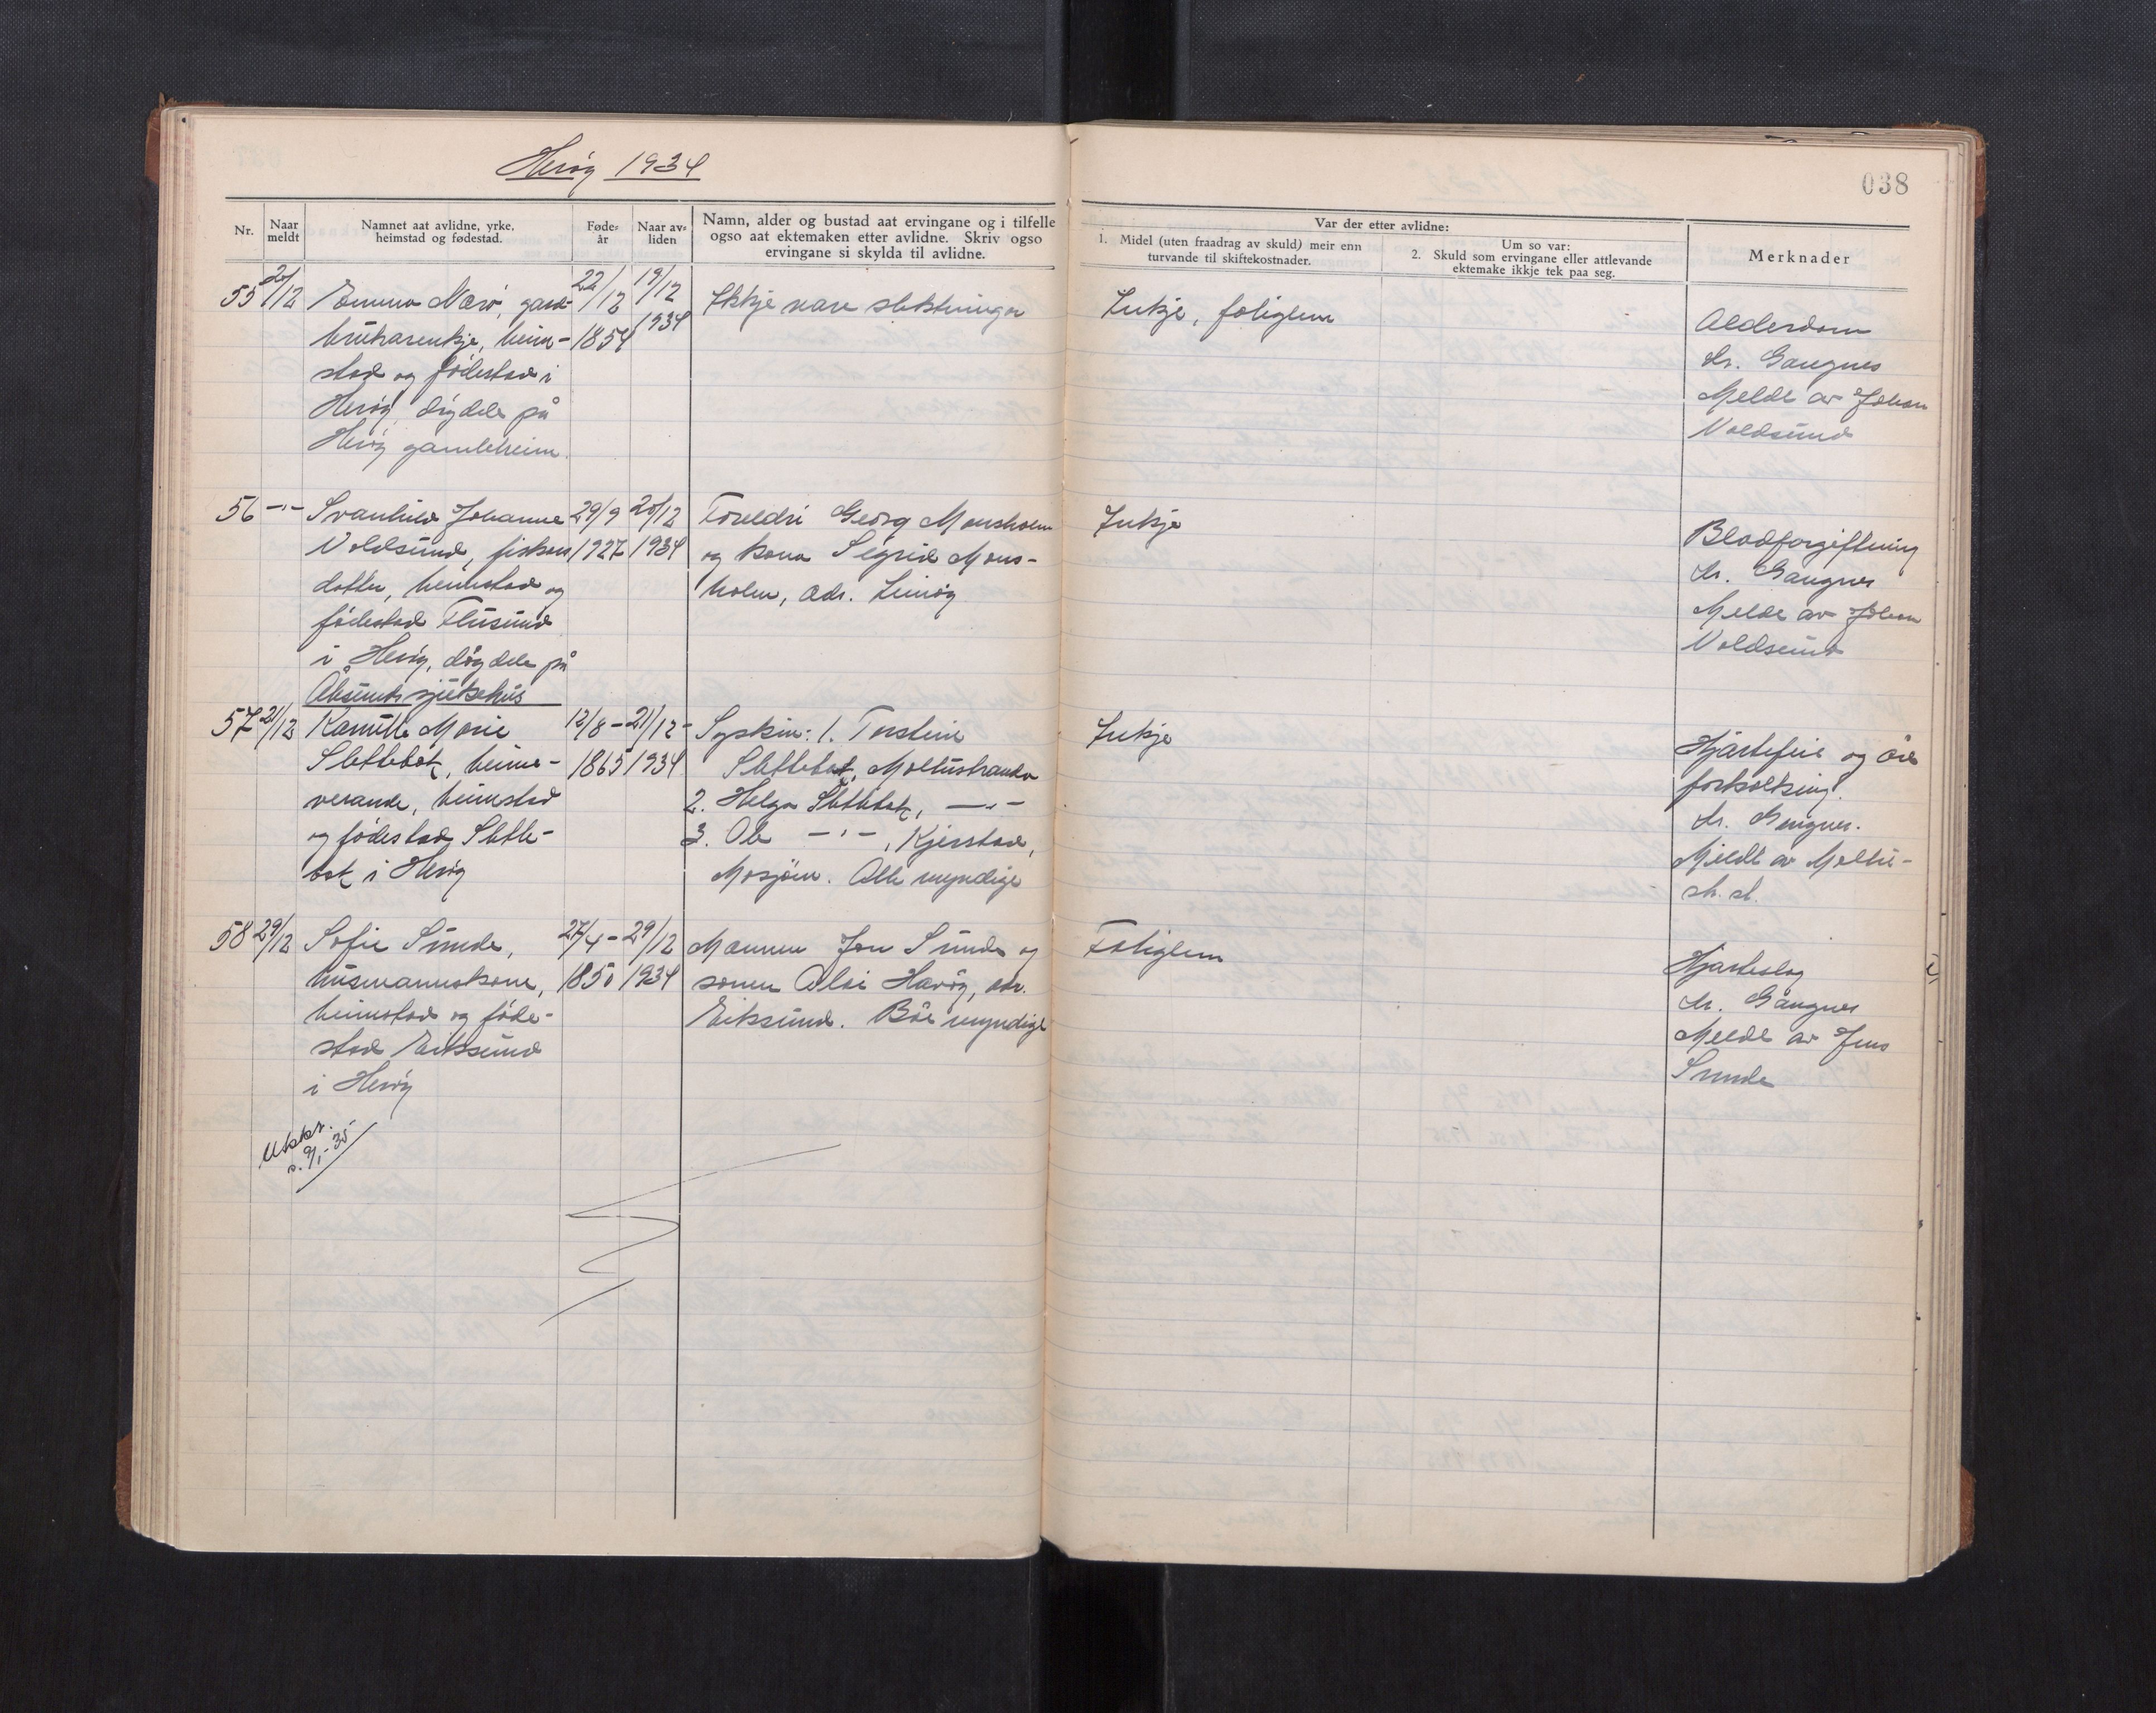 Herøy 1934
038
Nr.
Naar meldt
Namnet aat avlidne, yrke, heimstad og fødestad.
Føde-år
Naar av-liden
Namn, alder og bustad aat ervingane og i tilfelle
ogso aat ektemaken etter avlidne. Skriv ogso
ervingane si skylda til avlidne.
Var der etter avlidne:
1. Midel (uten fraadrag av skuld) meir enn
turvande til skiftekostnader.
Um so var:
2. Skuld som ervingane eller attlevande
ektemake ikkje tek paa seg.
Merknader
55 20/12 Emma Nærø, gard-
brukarenkje, heim-
stad og fødestad i
Herøy, døydde på
Herøy gamleheim.
22/12
1854
19/12
1934
Ikkje nære slektninger
Inkje, fatiglem
Alderdom
dr. Gangnes
Meldt av Johan
Voldsund
56 -"- Svanhild Johanne
Voldsund, fiskar
dotter, heimstad og
fødestad Flusund
i Herøy, døydde på
Ålesunds sjukehus
29/9
1927
20/12
1934
Foreldri Georg Monsholm
og kona Sigrid Mons-
holm, adr. Leinøy
Inkje
Blodforgiftning
dr. Gangnes
Meldt av Johan
Voldsund
57 21/12 Kamilla Marie
Slettebak, heime-
verande, heimstad
og fødestad Slette-
bak i Herøy
12/8 -
1865
21/12 -
1934
Syskin: 1. Torstein
Slettebak, Moltustranda
2. Helga Slettebak, -"-
3. Ole -"-, Kjerstad,
Mosjøen. Alle myndige
Inkje
Hjartefeil og åre
forkalking.
dr. Gangnes.
Meldt av Moltu-
str. st.
58 29/12 Sofie Sunde,
husmannskone,
heimstad og føde-
stad Eiksund
i Herøy
27/4 -
1850
29/12
1934
Mannen Jon Sunde og
sonen Alei Havøy, adr.
Eiksund. Båe myndige
Fatiglem
Hjarteslag
dr. Gangnes
Meldt av Jens
Sunde
Utskr.
s. 9/1-35